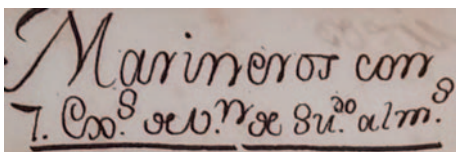 Marineros con
7. Exs. de v.n de Su.do alm.s